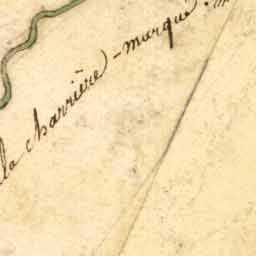 la charrière-marque